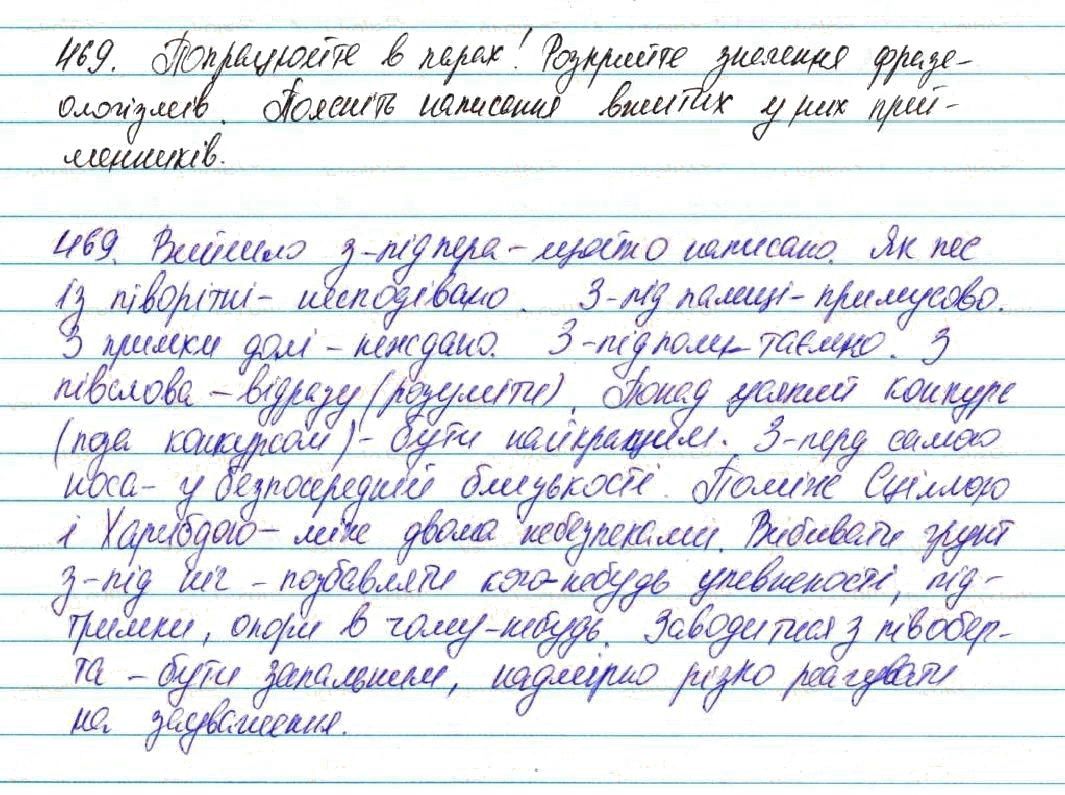 469. Попрацюйте в парах! Розкрийте значення фразе-
ологізмів. Поясніть написання вжитих у них прий-
менників.
469. Вийшло з-під пера – щойно написано. Як пес
із підворітні – несподівано. З-під палиці – примусово.
З примхи долі – неждано. З-під поли – таємно. З
півслова – відразу (розуміти). Понад усякий конкурс
(поза конкурсом) – бути найкращим. З-перд самого
носа – у безпосередній близькості. Поміж Сціллою
і Харибдою – між двома небезпеками. Вибивати грунт
з-під ніг – позбавляти кого-небудь упевненості, під-
тримки, опори в чому-небудь. Заводитися з півобер-
та – бути запальним, надмірно різко реагувати
на зауваження.